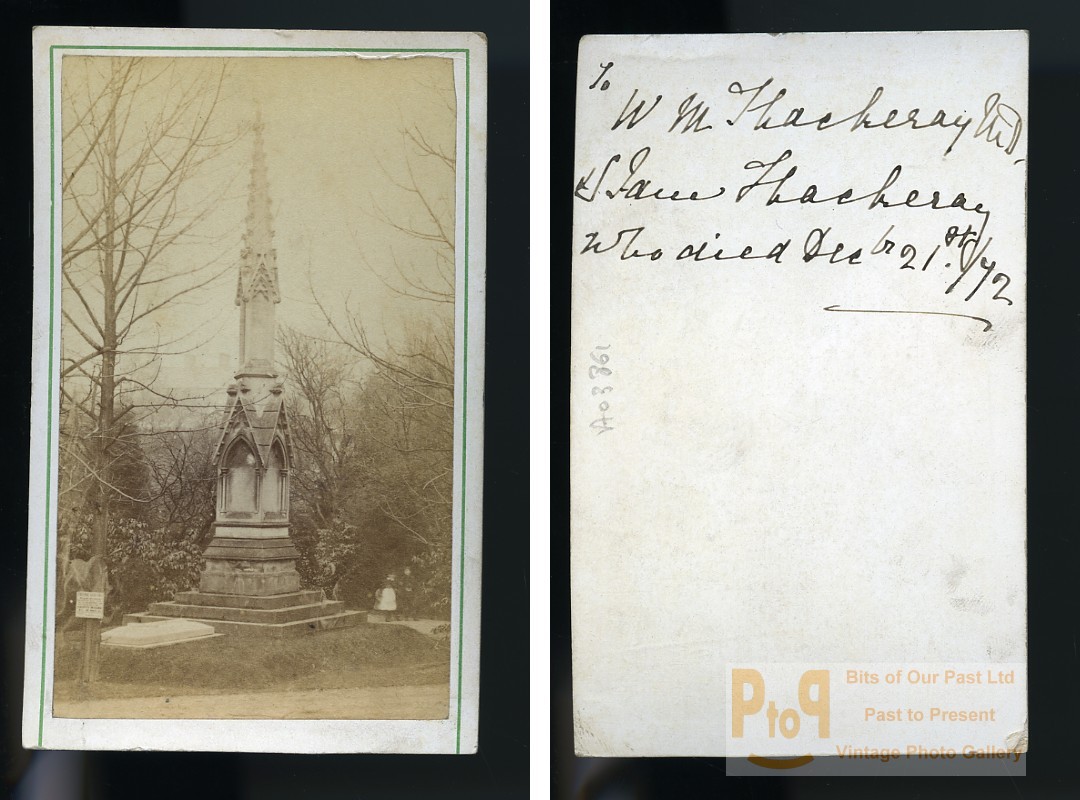 To
W M Thackeray M.D.
& Jane Thackeray
Who died Decbr 21st /72
A03361
PtoP
Bits of Our Past Ltd
Past to Present
Vintage Photo Gallery